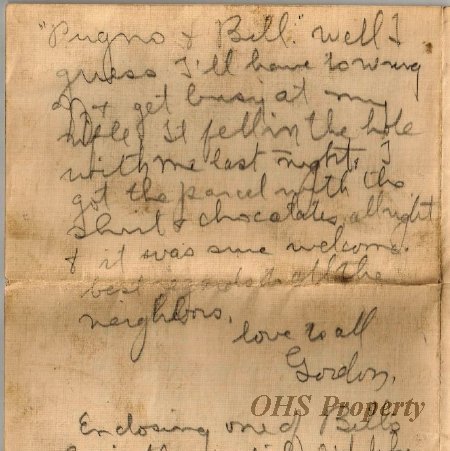 "Pugno & Bill." Well I
guess I'll have to wring
off & get busy at my
rifle. It fell in the hole
with me last night. I
got the parcel with the
shirt & chocolates allright
& it was sure welcome.
best regards to all the
neighbors.
love to all
Gordon.
OHS Property
Enclosing one of Bills